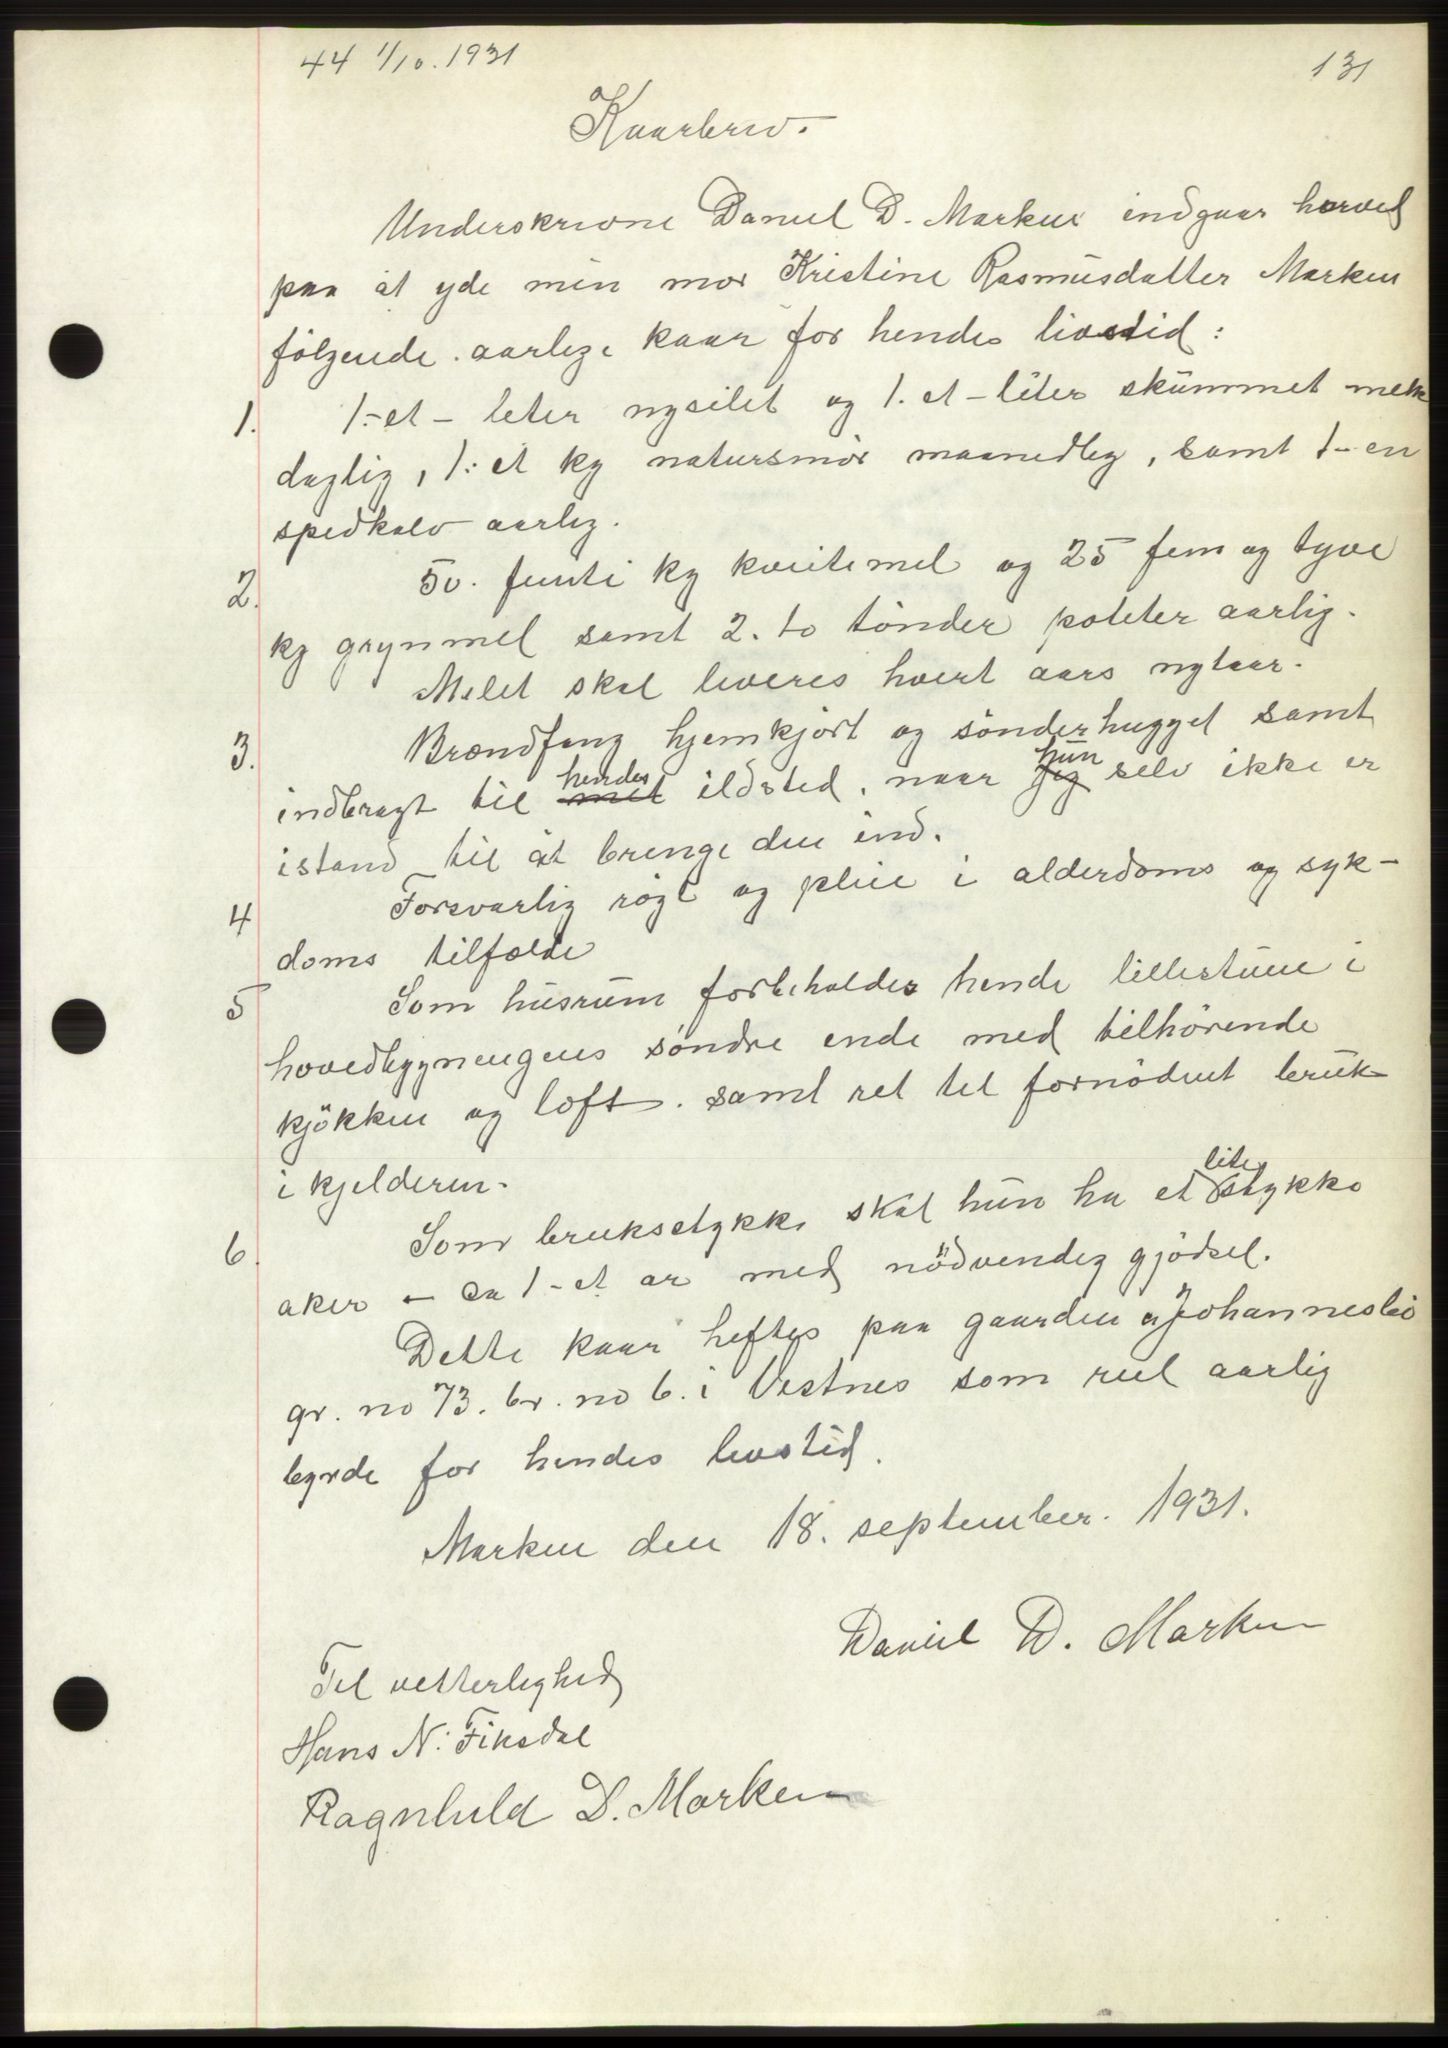 44 1/10. 1931
131
Kaarbrev.
Underskrevne Daniel D. Marken indgaar herved
paa at yde min mor Kristine Rasmusdatter Marken
følgende aarlige kaar for hendes livstid:
1. 1.-et - liter nysilet og 1. et - liter skummet melk
daglig, 1.- et kg natursmør maanedlig, samt 1- en
spedkalv aarlig.
2. 50. femti kg kveitemel og 25 fem og tyve
kg grynmel samt 2. to tønder poteter aarlig.
Melet skal leveres hvert aars nytaar.
3. Brændfang hjemkjørt og sønderhugget samt
indbragt til mit hendes ildsted, naar jeg hun selv ikke er
istand til at bringe den ind.
4 Forsvarlig røgt og pleie i alderdoms og syk-
doms tilfælde
5 Som husrum forbeholdes hende lillestuue i
hovedbygningens søndre ende med tilhørende
kjøkken og loft. samt ret til fornødent bruk
i kjelderen.
6. Som bruksstykke skal hun ha et lite stykke
aker - ca 1 - et ar med nødvendig gjødsel.
Dette kaar heftes paa gaarden Johanneslie
gr. no 73. br. no 6. i Vestnes som reel aarlig
byrde for hendes livstid.
Marken den 18. september. 1931.
Daniel D. Marken
Til vitterlighed
Hans N. Fiksdal
Ragnhild D. Marken